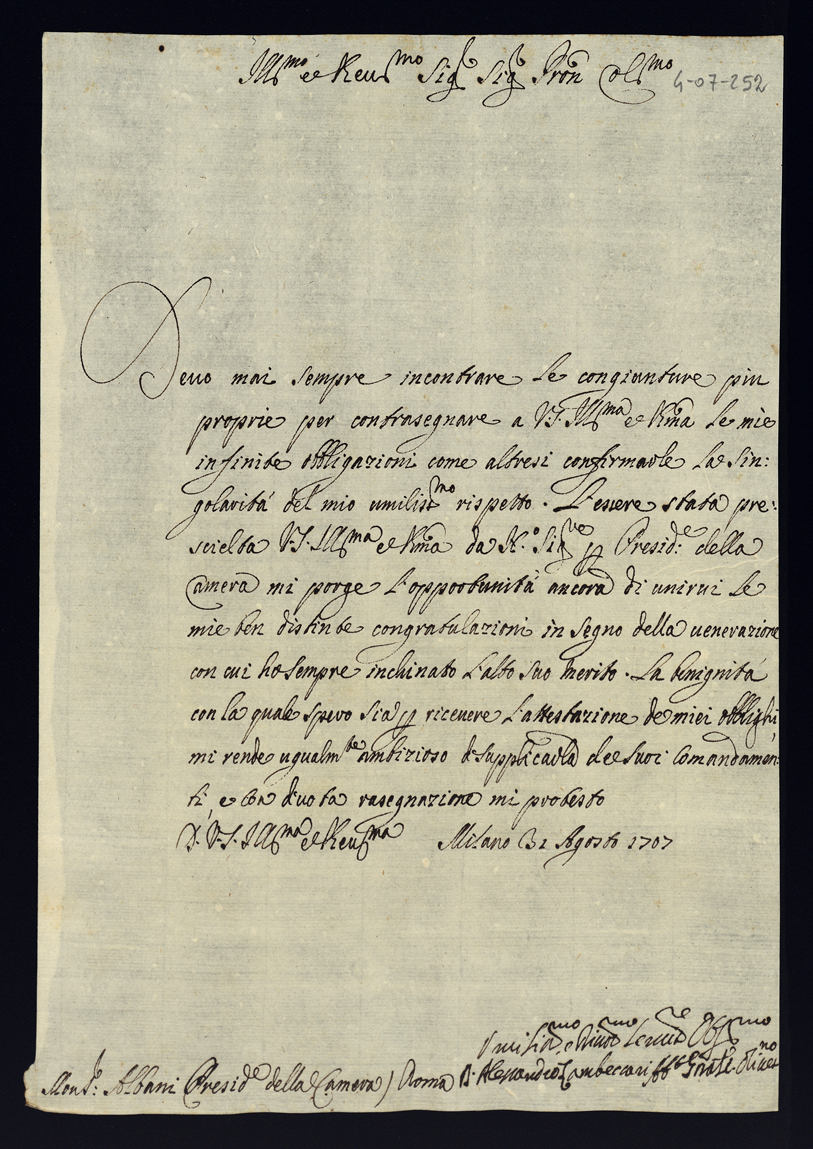 Ill.mo e Reu.mo Sig.r Sig.r Pron Col.mo
4-07-252
Deuo mai sempre incontrare le congiunture piu
proprie per contrasegnare a V.S. Ill.ma e R.ma le mie
infinite obbligazioni come altresi confirmarle la sin:
golarità del mio umiliss.mo rispetto. L'essere stata pre:
scielta V.S. Ill.ma e R.ma da N.o Sig.re p Presid.e della
Camera mi porge l'opportunità ancora di unirui le
mie ben distinte congratulazioni in segno della uenerazione
con cui ho sempre inchinato l'alto suo merito. La benignità
con la quale spero sia p riceuere l'attestazione de miei obblighi,
mi rende ugualm.te ambizioso di supplicarla de suoi Comandamen:
ti, e con diuota rasegnazione mi protesto
D. V.S. Ill.ma e Reu.ma Milano 31 Agosto 1707
Umiliss.mo Diuot.mo Seru.re Obb.mo
Mons.r Albani Presid.e della Camera / Roma D. Alessandro Zambeccari Abb.te Oliuet.no